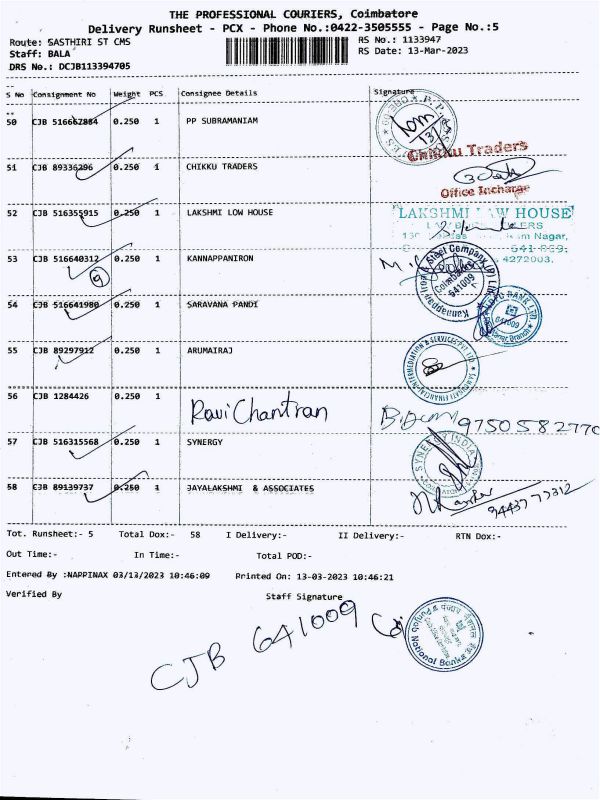 THE PROFESSIONAL COURIERS, Coimbatore
Delivery Runsheet - PCX - Phone No.:0422-3505555 - Page No.:5
Route: SASTHIRI ST CMS RS No.: 1133947
Staff: BALA RS Date: 13-Mar-2023
DRS No.: DCJB113394705
S No Consignment No Weight PCS Consignee Details Signature
50 CJB 516667884 0.250 1 PP SUBRAMANIAM
51 CJB 89336296 0.250 1 CHIKKU TRADERS
Chikku Traders
Office Incharge
52 CJB 516355915 0.250 1 LAKSHMI LOW HOUSE
LAKSHMI LAW HOUSE
Nagar,
4272003.
53 CJB 516640312 0.250 1 KANNAPPANIRON
Kannappan Iron & Steel Company (P) Ltd
Coimbatore
641009
9
54 CJB 516641986 0.250 1 SARAVANA PANDI
BANK LTD.
641009
Branch
55 CJB 89297912 0.250 1 ARUMAIRAJ
INTERMEDIATION & SERVICES PVT LTD
56 CJB 1284426 0.250 1 Ravi Chantran 9750582770
57 CJB 516315568 0.250 1 SYNERGY
SYNERGY INDIA
58 CJB 89139737 0.250 1 JAYALAKSHMI & ASSOCIATES
9443777312
Tot. Runsheet:- 5 Total Dox:- 58 I Delivery:- II Delivery:- RTN Dox:-
Out Time:- In Time:- Total POD:-
Entered By :NAPPINAX 03/13/2023 10:46:09 Printed On: 13-03-2023 10:46:21
Verified By Staff Signature
CJB 641009
National Bank